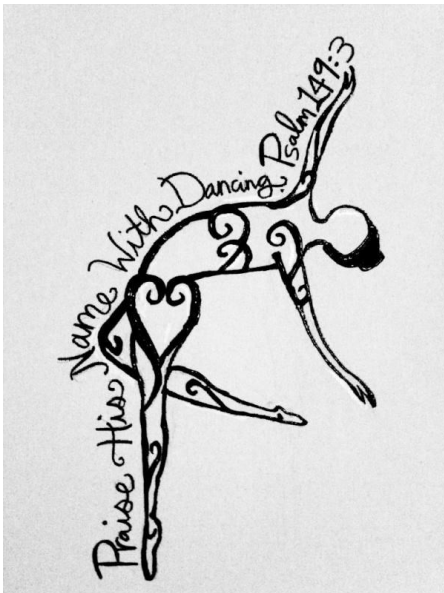 Praise His Name With Dancing. Psalm 149:3